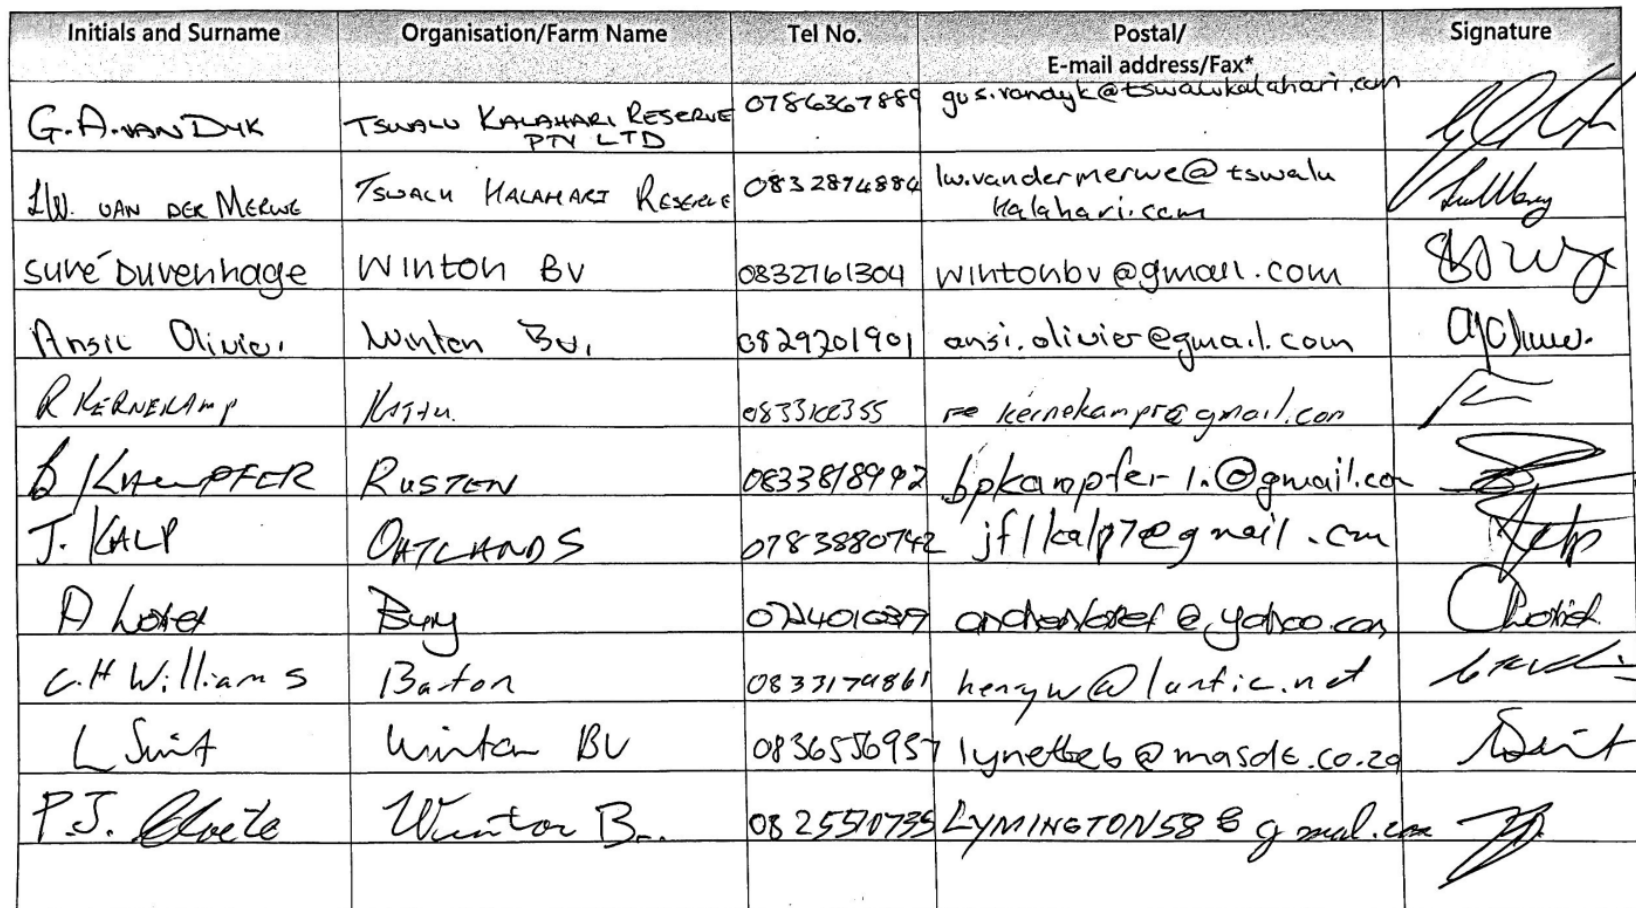 Initials and Surname Organisation/Farm Name Tel No. Postal/ Signature
E-mail address/Fax*
G.A. VAN DYK TSWALU KALAHARI RESERVE 0786367889 gus.vandyk@tswalukalahari.com
PTY LTD
LW. VAN DER MERWE TSWALU KALAHARI RESERVE 0832874884 lw.vandermerwe@tswalu
kalahari.com
suré Duvenhage WINTON BV 0832761304 wintonbv@gmail.com
Ansie Olivier Winton BV. 0829201901 ansi.olivier@gmail.com
R KERNEKAMP KATHU kernekampr@gmail.com
B KAMPFER RUSTEN 0833818992 bpkampfer-1.@gmail.com
J. KALP OATLANDS 0783880742 jflkalp7@gmail.com
A
C.H Williams Barton 0833174861 henryw@lantic.net
L Smit Winton BV 0836556957
P.J. Cloete Winton B 0825570735 LYMINGTON58@gmail.com